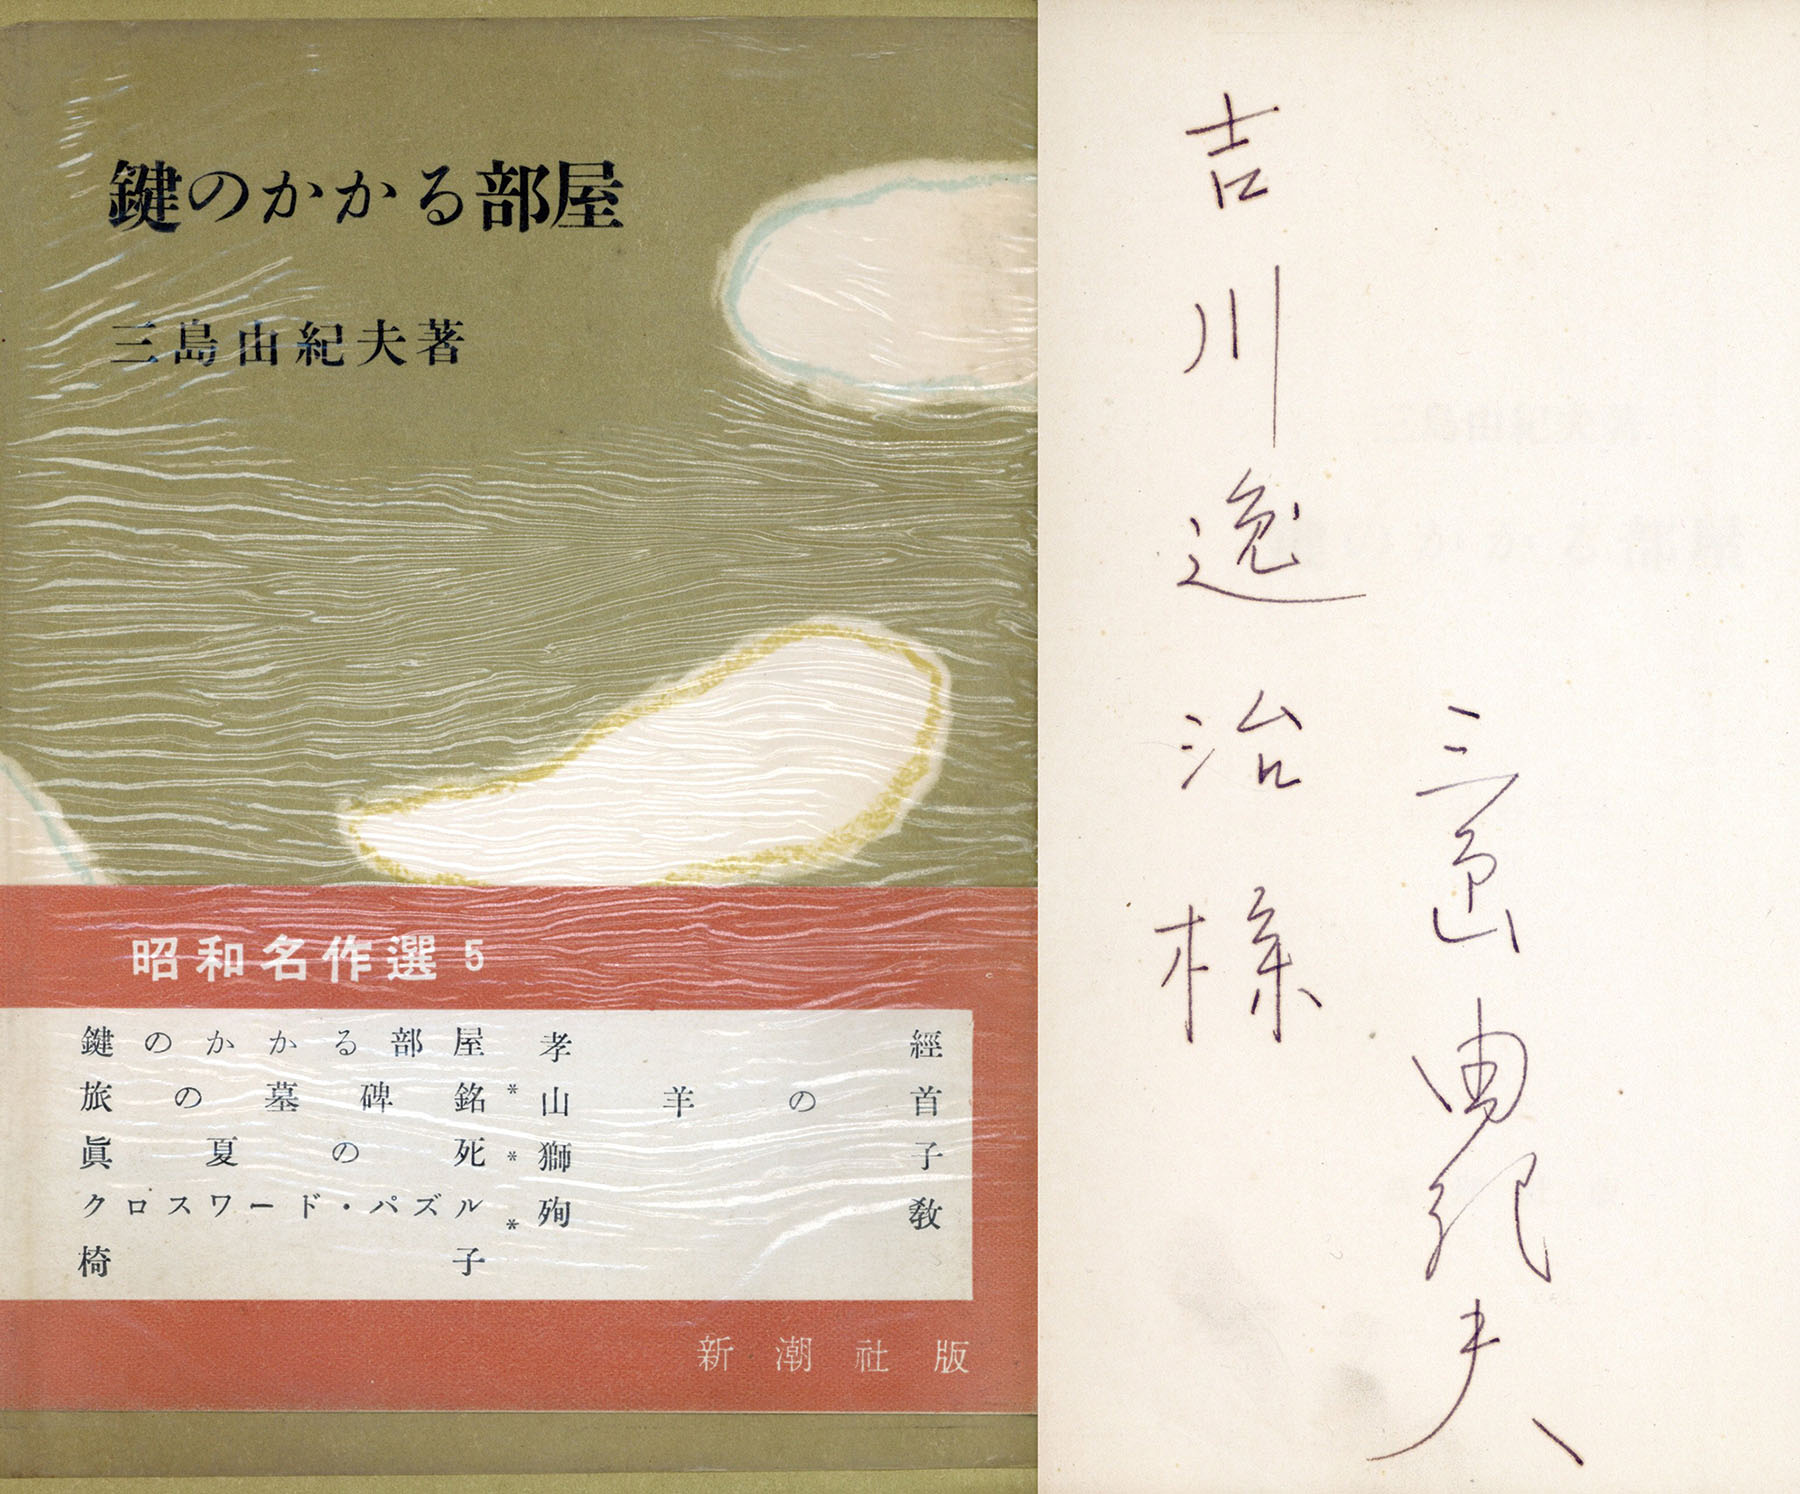 鍵のかかる部屋
三島由紀夫著
昭和名作選 5
鍵のかかる部屋
旅の墓碑銘
眞夏の死
クロスワード・パズル
椅子
孝經
* 山羊の首
* 獅子
* 殉教
新潮社版
吉川逸治様
三島由紀夫